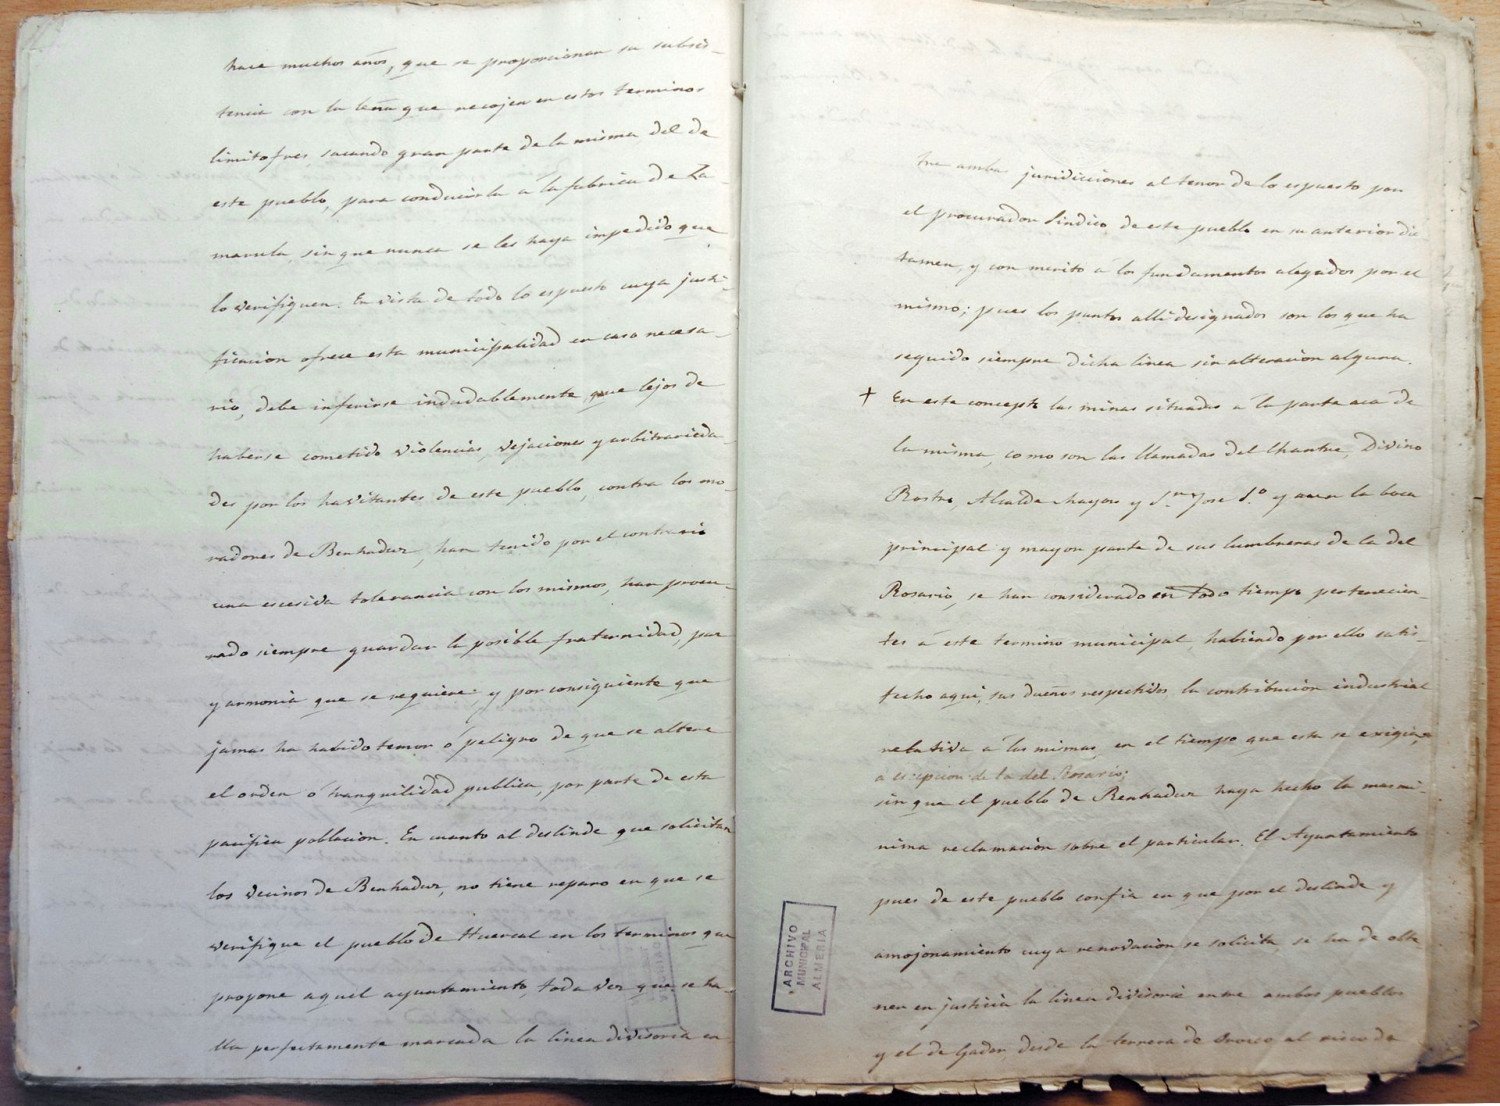 hace muchos años, que se proporcionan su subsis-
tencia con la leña que recojen en estos terminos
limitofres, sacando gran parte de la misma del de
este pueblo, para conducirla a la fabrica de Za-
marula, sin que nunca se les haya impedido que
lo verifiquen. En vista de todo lo espuesto cuya justi-
ficacion ofrece esta municipalidad en caso necesa-
rio, debe inferirse indudablemente, que lejos de
haberse cometido violencias, vejaciones y arbitrarieda-
des por los havitantes de este pueblo, contra los mo-
radores de Benhadux, han tenido por el contrario
una escesiva tolerancia con los mismos, han procu-
rado siempre guardar la posible fraternidad, paz
y armonia que se requiere y por consiguiente que
jamas ha habido temor ó peligro de que se altere
el orden ó tranquilidad publica, por parte de esta
pacifica poblacion. En cuanto al deslinde que solicitan
los vecinos de Benhadux, no tiene reparo en que se
verifique el pueblo de Huercal en los terminos que
propone aquel ayuntamiento, toda vez que se ha-
lla perfectamente marcada la linea divisoria en-
tre ambas juridicciones al tenor de lo espuesto por
el procurador Sindico de este pueblo en su anterior dic
tamen, y con merito á los fundamentos alegados por el
mismo; pues los puntos alli designados son los que ha
seguido siempre dicha linea sin alteracion alguna.
+ En este concepto las minas situadas á la parte aca de
la misma, como son las llamadas del Chantre, Divino
Rostro, Alcalde mayor y S.n Jose 1.º y aun la boca
principal y mayor parte de sus lumbreras de la del
Rosario, se han considerado en todo tiempo pertenecien-
tes á este termino municipal, habiendo por ello satis-
fecho aqui, sus dueños respectibos la contribucion industrial
relativa á las mismas, en el tiempo que esta se exigia,
a escepcion de la del Rosario;
sin que el pueblo de Benhadux haya hecho la mas mi-
nima reclamacion sobre el particular. El Ayuntamiento
pues de este pueblo confia en que por el deslinde y
amojonamiento cuya renovacion se solicita, se ha de obte-
ner en justicia la linea divisoria entre ambos pueblos
y el de Gador, desde la terrera de Orozco al risco de
ARCHIVO
MUNICIPAL
ALMERIA